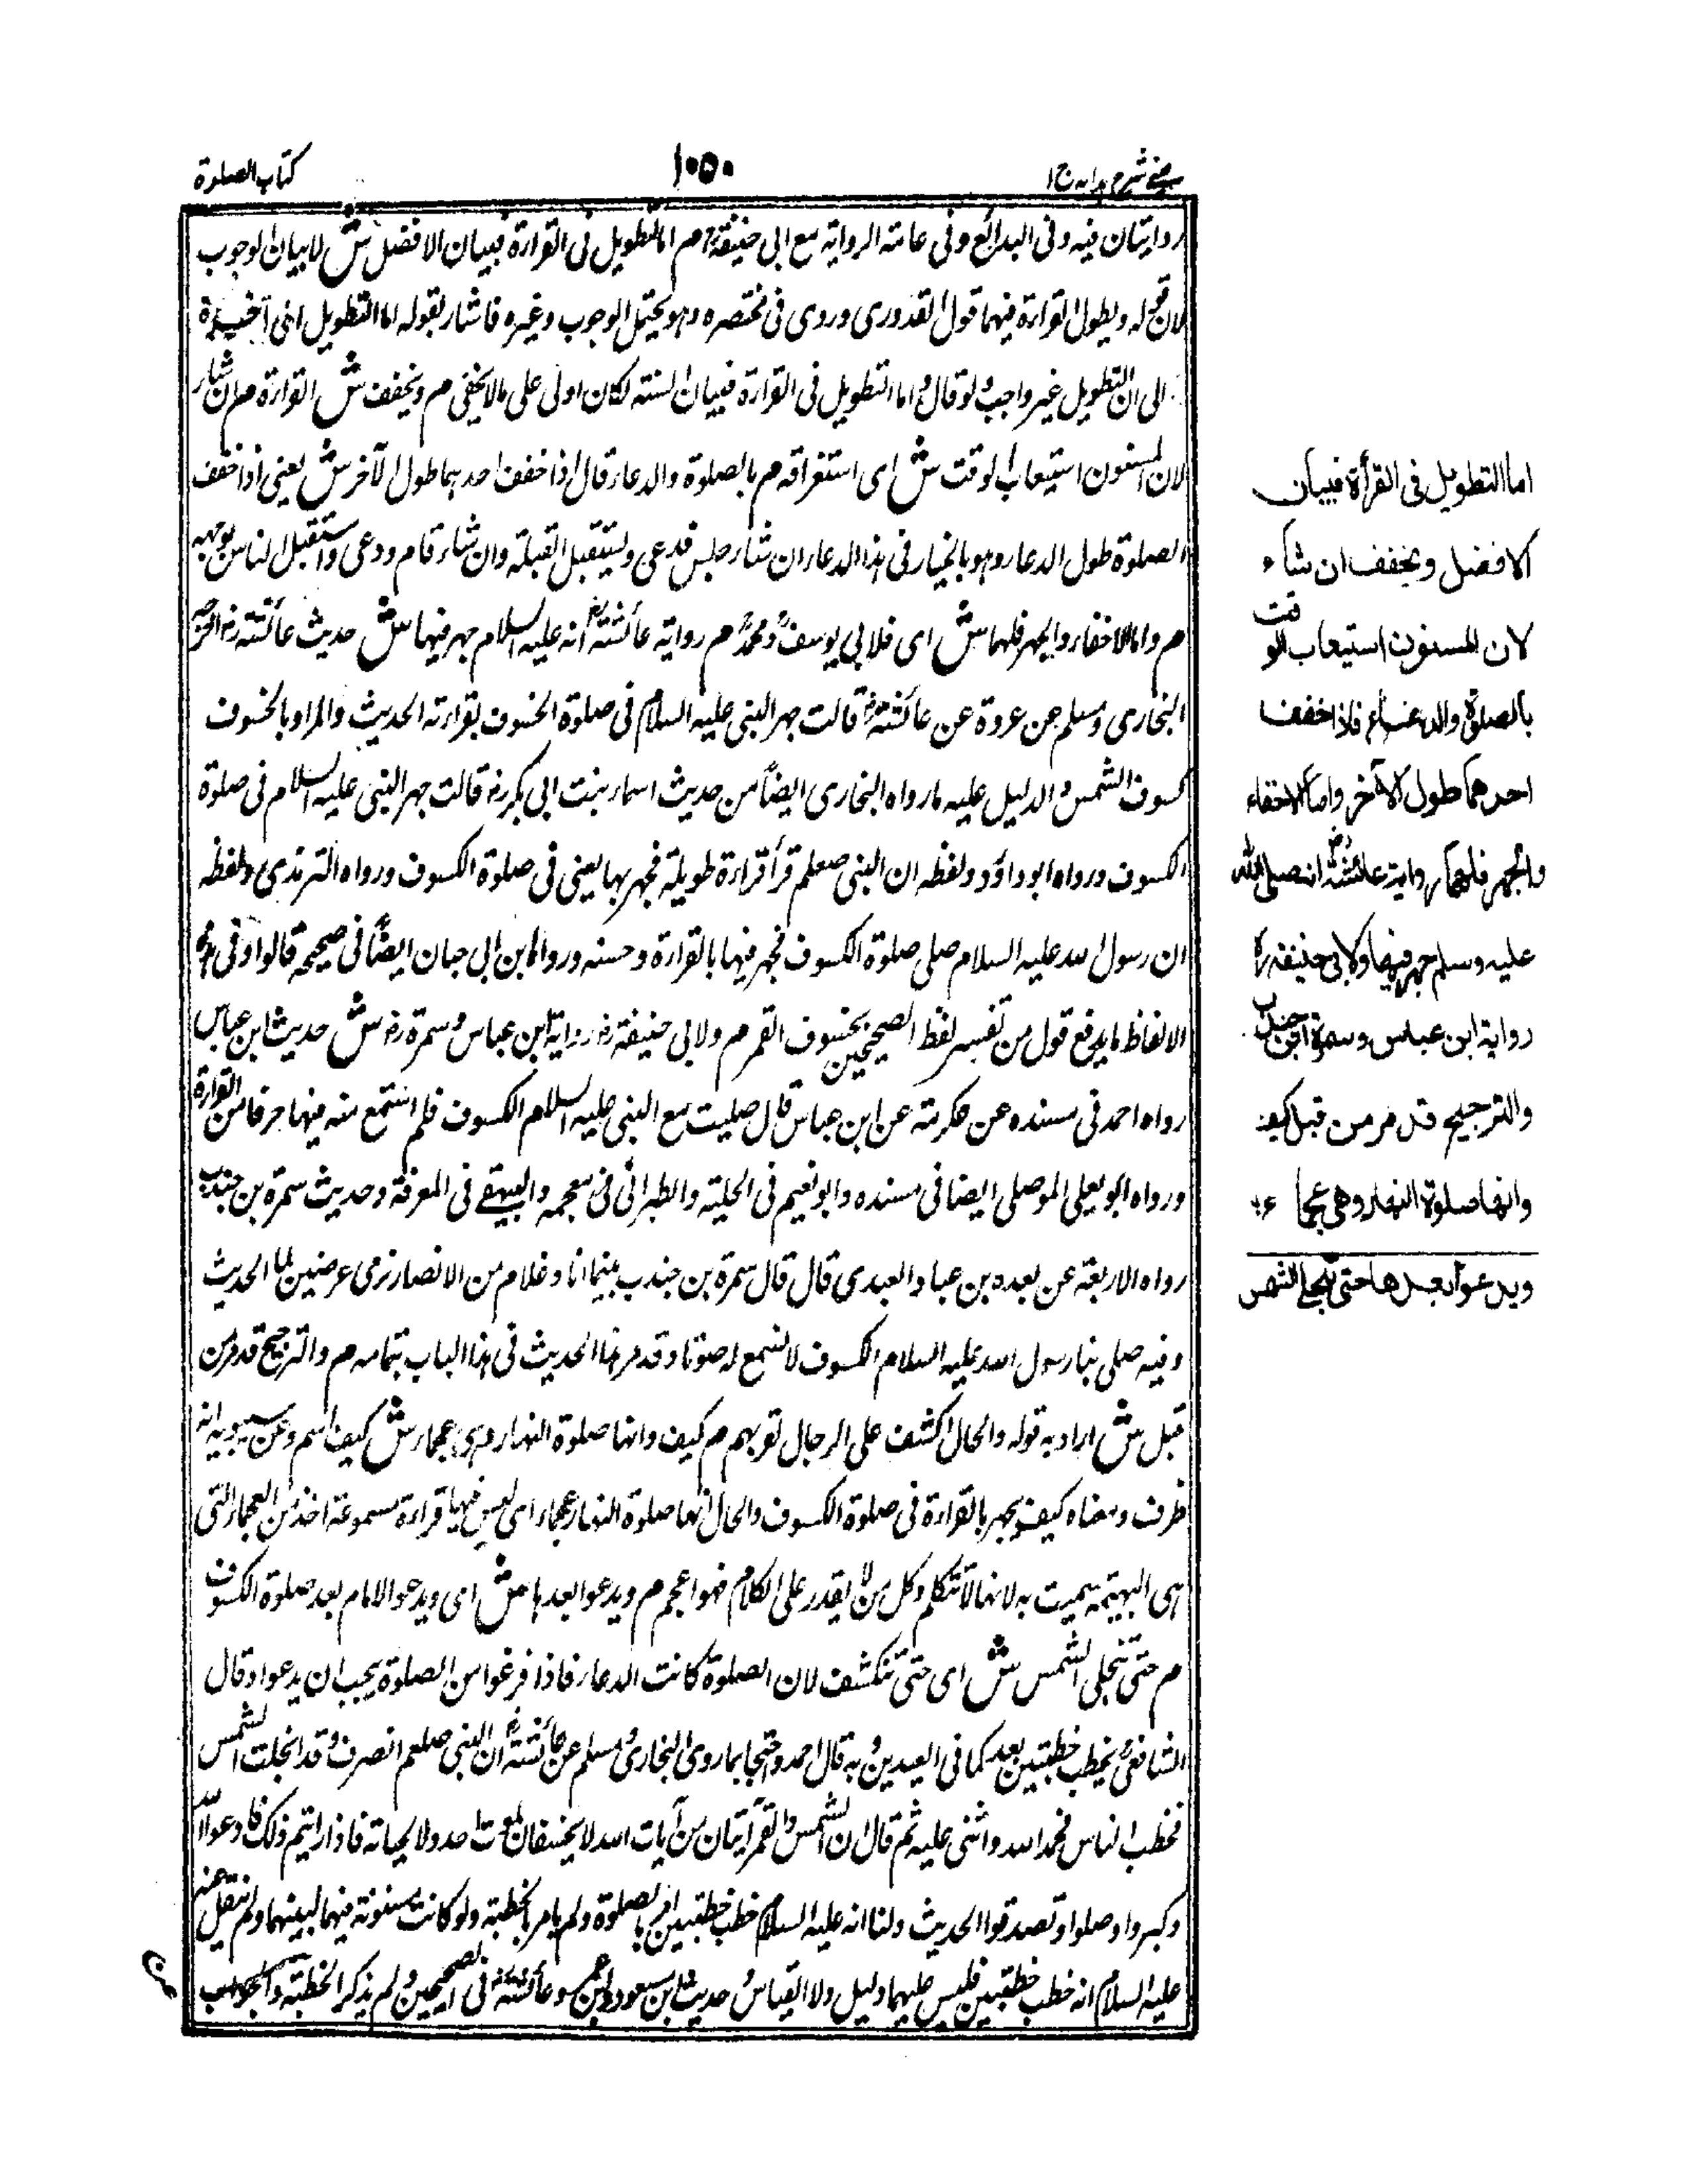 عيني شرح هدايه ج ١
١٠٥٠
كتاب الصلوة
روايتان فيه وفى البدائع وفى عامته الرواية مع ابى حنيفة م اما التطويل فى القراءة فبيان الافضل ش لا بيان الوجوب
لان قوله ويطول القراءة فيهما قول القدورى وروى فى مختصره وهو يحتمل الوجوب وغيره فاشار بقوله اما التطويل
الى ان التطويل غير واجب ولو قال واما التطويل فى القراءة فبيان السنته لكان اولى على مالا يخفى م ويخفف ش القراءة م ان شاء
لان المسنون استيعاب الوقت ش اى استغراقه م بالصلوة والدعاء قال اذا خفف احدهما طول الآخر ش يعنى اذا خفف
الصلوة طول الدعاء وهو بالخيار فى هذا الدعاء ان شاء جلس فدعى ويستقبل القبلة وان شاء قام ودعى واستقبل الناس بوجهه
م واما الاخفاء والجهر فلهما ش اى فلابى يوسف ومحمد م رواية عائشة انه عليه السلام جهر فيها ش حديث عائشة رض اخرجه
البخارى ومسلم عن عروة عن عائشة قالت جهر النبى عليه السلام فى صلوة الخسوف بقراءته الحديث والمراد بالخسوف
كسوف الشمس والدليل عليه ما رواه البخارى ايضا من حديث اسماء بنت ابى بكر رض قالت جهر النبى عليه السلام فى صلوة
الكسوف ورواه ابو داؤد ولفظه ان النبى صلعم قرأ قراءة طويلة فجهر بها يعنى فى صلوة الكسوف ورواه الترمذى ولفظه
ان رسول الله عليه السلام صلى صلوة الكسوف فجهر فيها بالقراءة وحسنه ورواه ابن ابى حبان ايضا فى صحيحه قالوا وفى هذه
الالفاظ ما يدفع قول من تفسير لفظ الصحيحين بخسوف القمر م ولابى حنيفة رض رواية ابن عباس وسمرة رض ش حديث ابن عباس
رواه احمد فى مسنده عن عكرمته عن ابن عباس قال صليت مع النبى عليه السلام الكسوف فلم استمع منه فيها حرفا من القراءة
ورواه ابو يعلى الموصلى ايضا فى مسنده وابو نعيم فى الحلية والطبرانى فى معجمه والبيهقى فى المعرفة وحديث سمرة بن جندب
رواه الاربعة عن بعده بن عباد العبدى قال قال سمرة بن جندب بينما انا وغلام من الانصار نرمى عرضين لنا الحديث
وفيه صلى بنا رسول الله عليه السلام الكسوف لا نسمع له صوتا وقد مر هذا الحديث فى هذا الباب بتمامه م والترجيح قد مر من
قبل ش اراد به قوله والحال اكشف على الرجال لقربهم م كيف وانها صلوة النهار وهى عجماء ش كيف اسم وعن سيبويه انه
ظرف ومعناه كيف يجهر بالقراءة فى صلوة الكسوف والحال انها صلوة النهار عجماء اى ليس فيها قراءة مسموعة اخذ من العجماء التى
هى البهيمة سميت به لانها لا تتكلم وكل من لا يقدر على الكلام فهو اعجم م ويدعو بعدها ش اى ويدعو الامام بعد صلوة الكسوف
م حتى تنجلى الشمس ش اى حتى تنكشف لان الصلوة كانت الدعاء فاذا فرغوا من الصلوة يجب ان يدعوا وقال
الشافعى يخطب خطبتين بعد كما فى العيدين وبه قال احمد واحتجا بما روى البخارى ومسلم عن عائشة ان النبى صلعم انصرف وقد انجلت الشمس
فخطب الناس فحمد الله واثنى عليه ثم قال ان الشمس والقمر آيتان من آيات الله لا يخسفان لموت احد ولا لحياته فاذا رايتم ذلك فادعوا الله
وكبروا وصلوا وتصدقوا الحديث ولنا انه عليه السلام خطب خطبتين امر بالصلوة ولم يامر بالخطبة ولو كانت مسنونة فيهما لبينهما ولم ينقل عنه
عليه السلام انه خطب خطبتين فليس عليهما دليل ولا القياس وحديث ابن مسعود وابن عمر وعائشة فى الصحيحين ولم يذكر الخطبة والجواب
عن
اما التطويل فى القرأة فبيان
الافضل ويخفف ان شاء
لان المسنون استيعاب الوقت
بالصلوة والدعاء فاذا خفف
احدهما طول الآخر واما الاخفاء
والجهر فلهما رواية عائشة انه صلى الله
عليه وسلم جهر فيها ولابى حنيفة ره
رواية ابن عباس وسمرة ابن جندب
والترجيح قد مر من قبل كيف
وانها صلوة النهار وهى عجماء
ويدعو بعدها حتى تنجلى الشمس